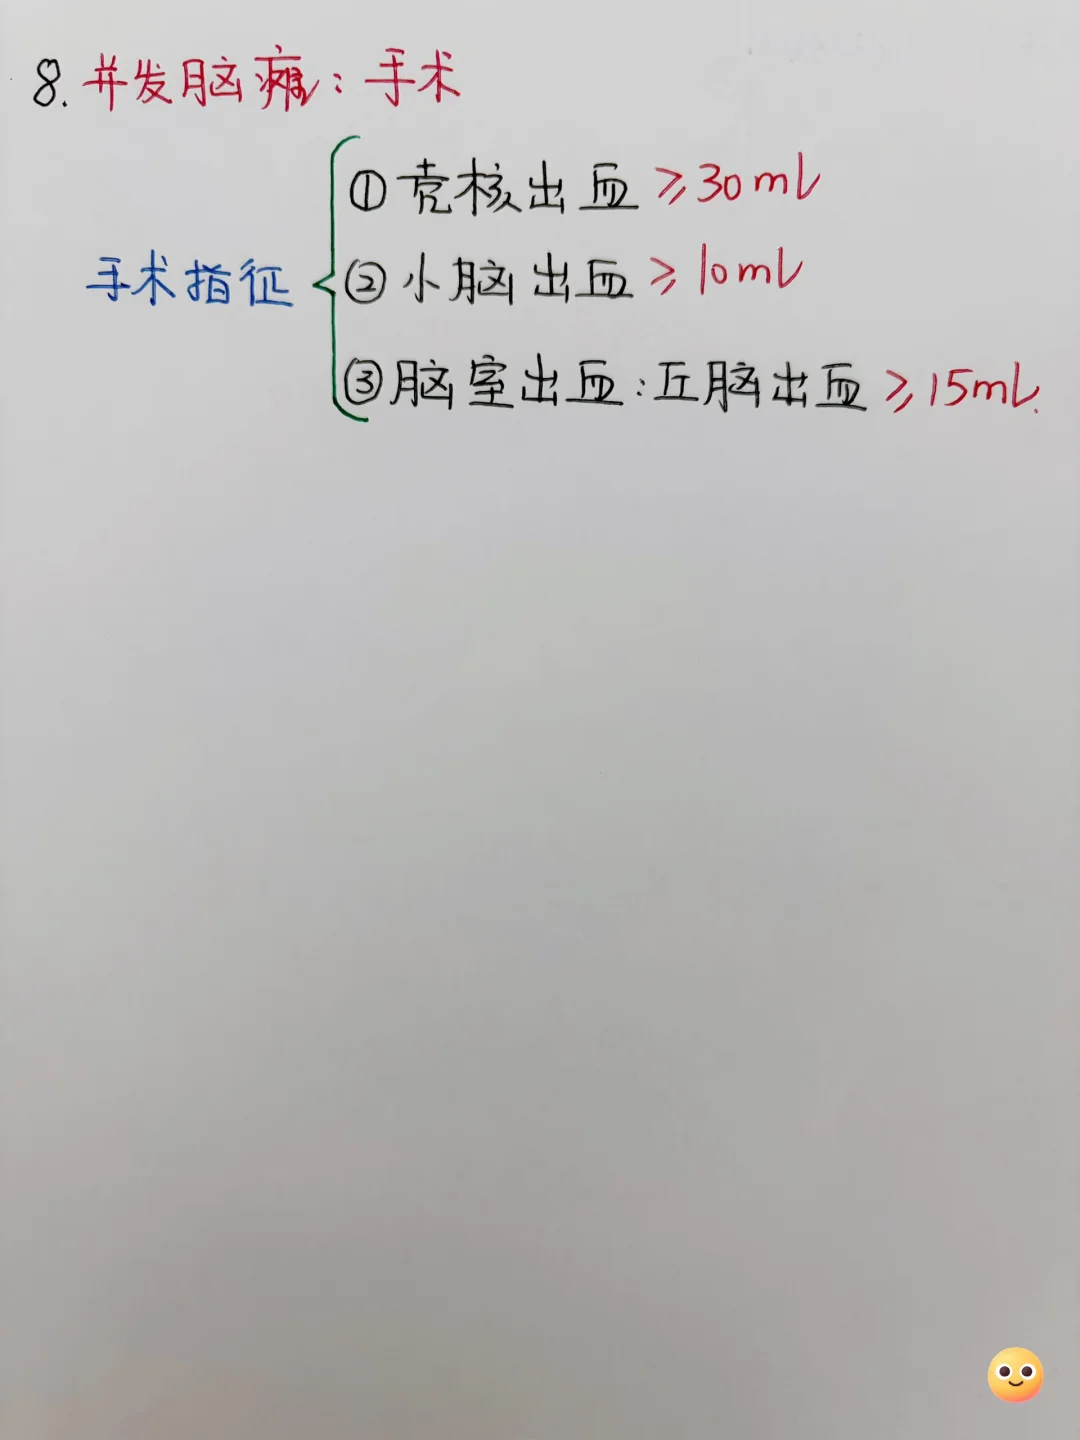 8.并发脑疝:手术
①壳核出血≥30ml
手术指征
②小脑出血≥10ml
③脑室出血:丘脑出血≥15ml.